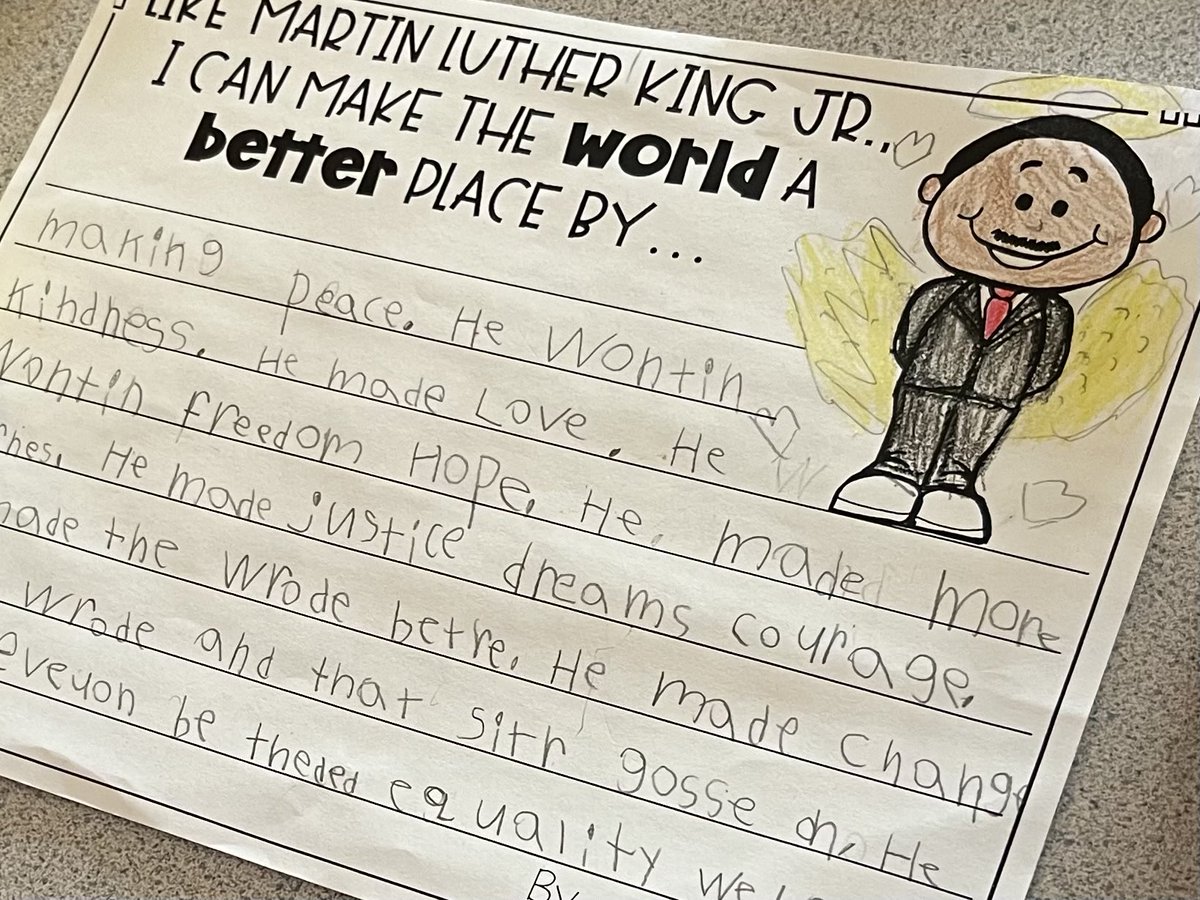 LIKE MARTIN LUTHER KING JR..,
I CAN MAKE THE world A
better PLACE BY...
making peace. He Wontin
Kindness. He made Love. He
Wontin freedom Hope. He. maded more
He made justice dreams courage.
made the wrode betre. He made change
wrode and that sitr gosse on. He
eveuon be theded equality we
By